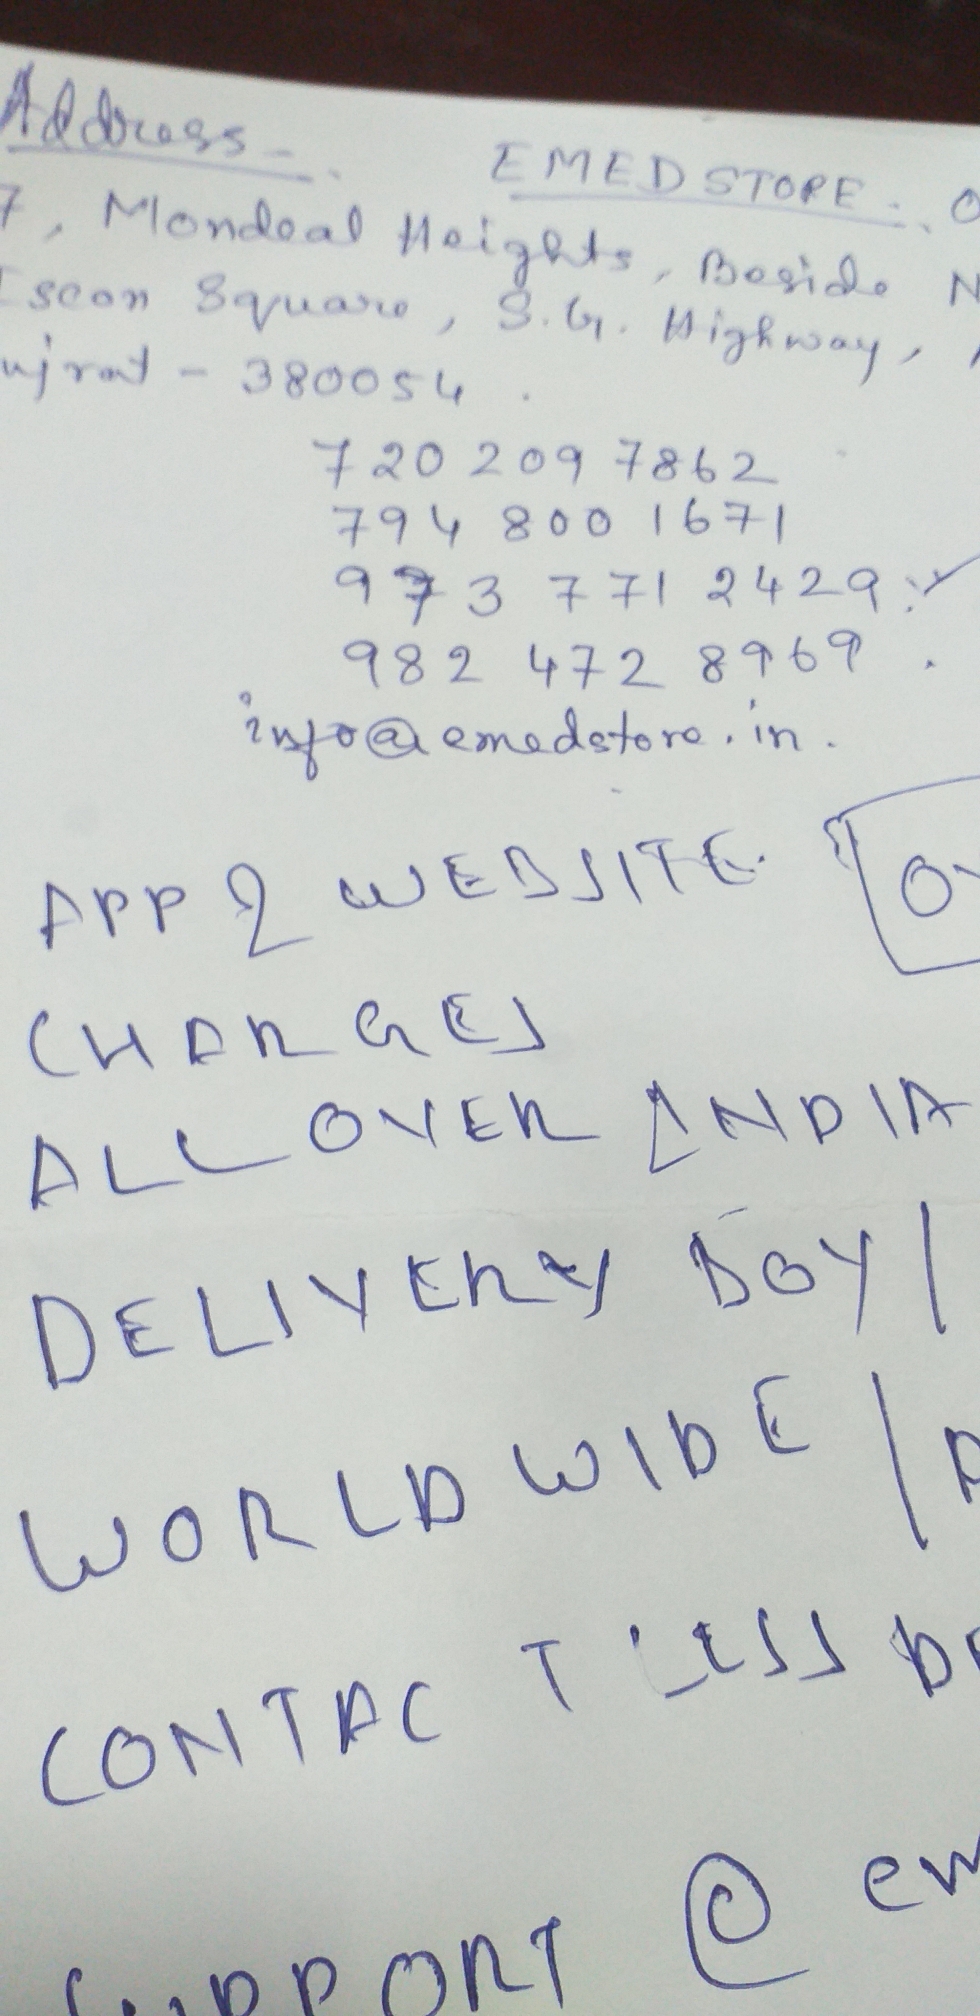 Address -
EMEDSTORE.
7, Mondeal Heights, Beside N
Iscon Square, S.G. Highway,
ujrat - 380054.
720 209 7862
794 800 1671
973 771 2429
982 472 8969.
info@emedstore.in.
APP & WEBSITE
CHARGES
ALL OVER INDIA
DELIVERY BOY /
WORLD WIDE /
CONTACT LESS DE
SUPPORT @ em